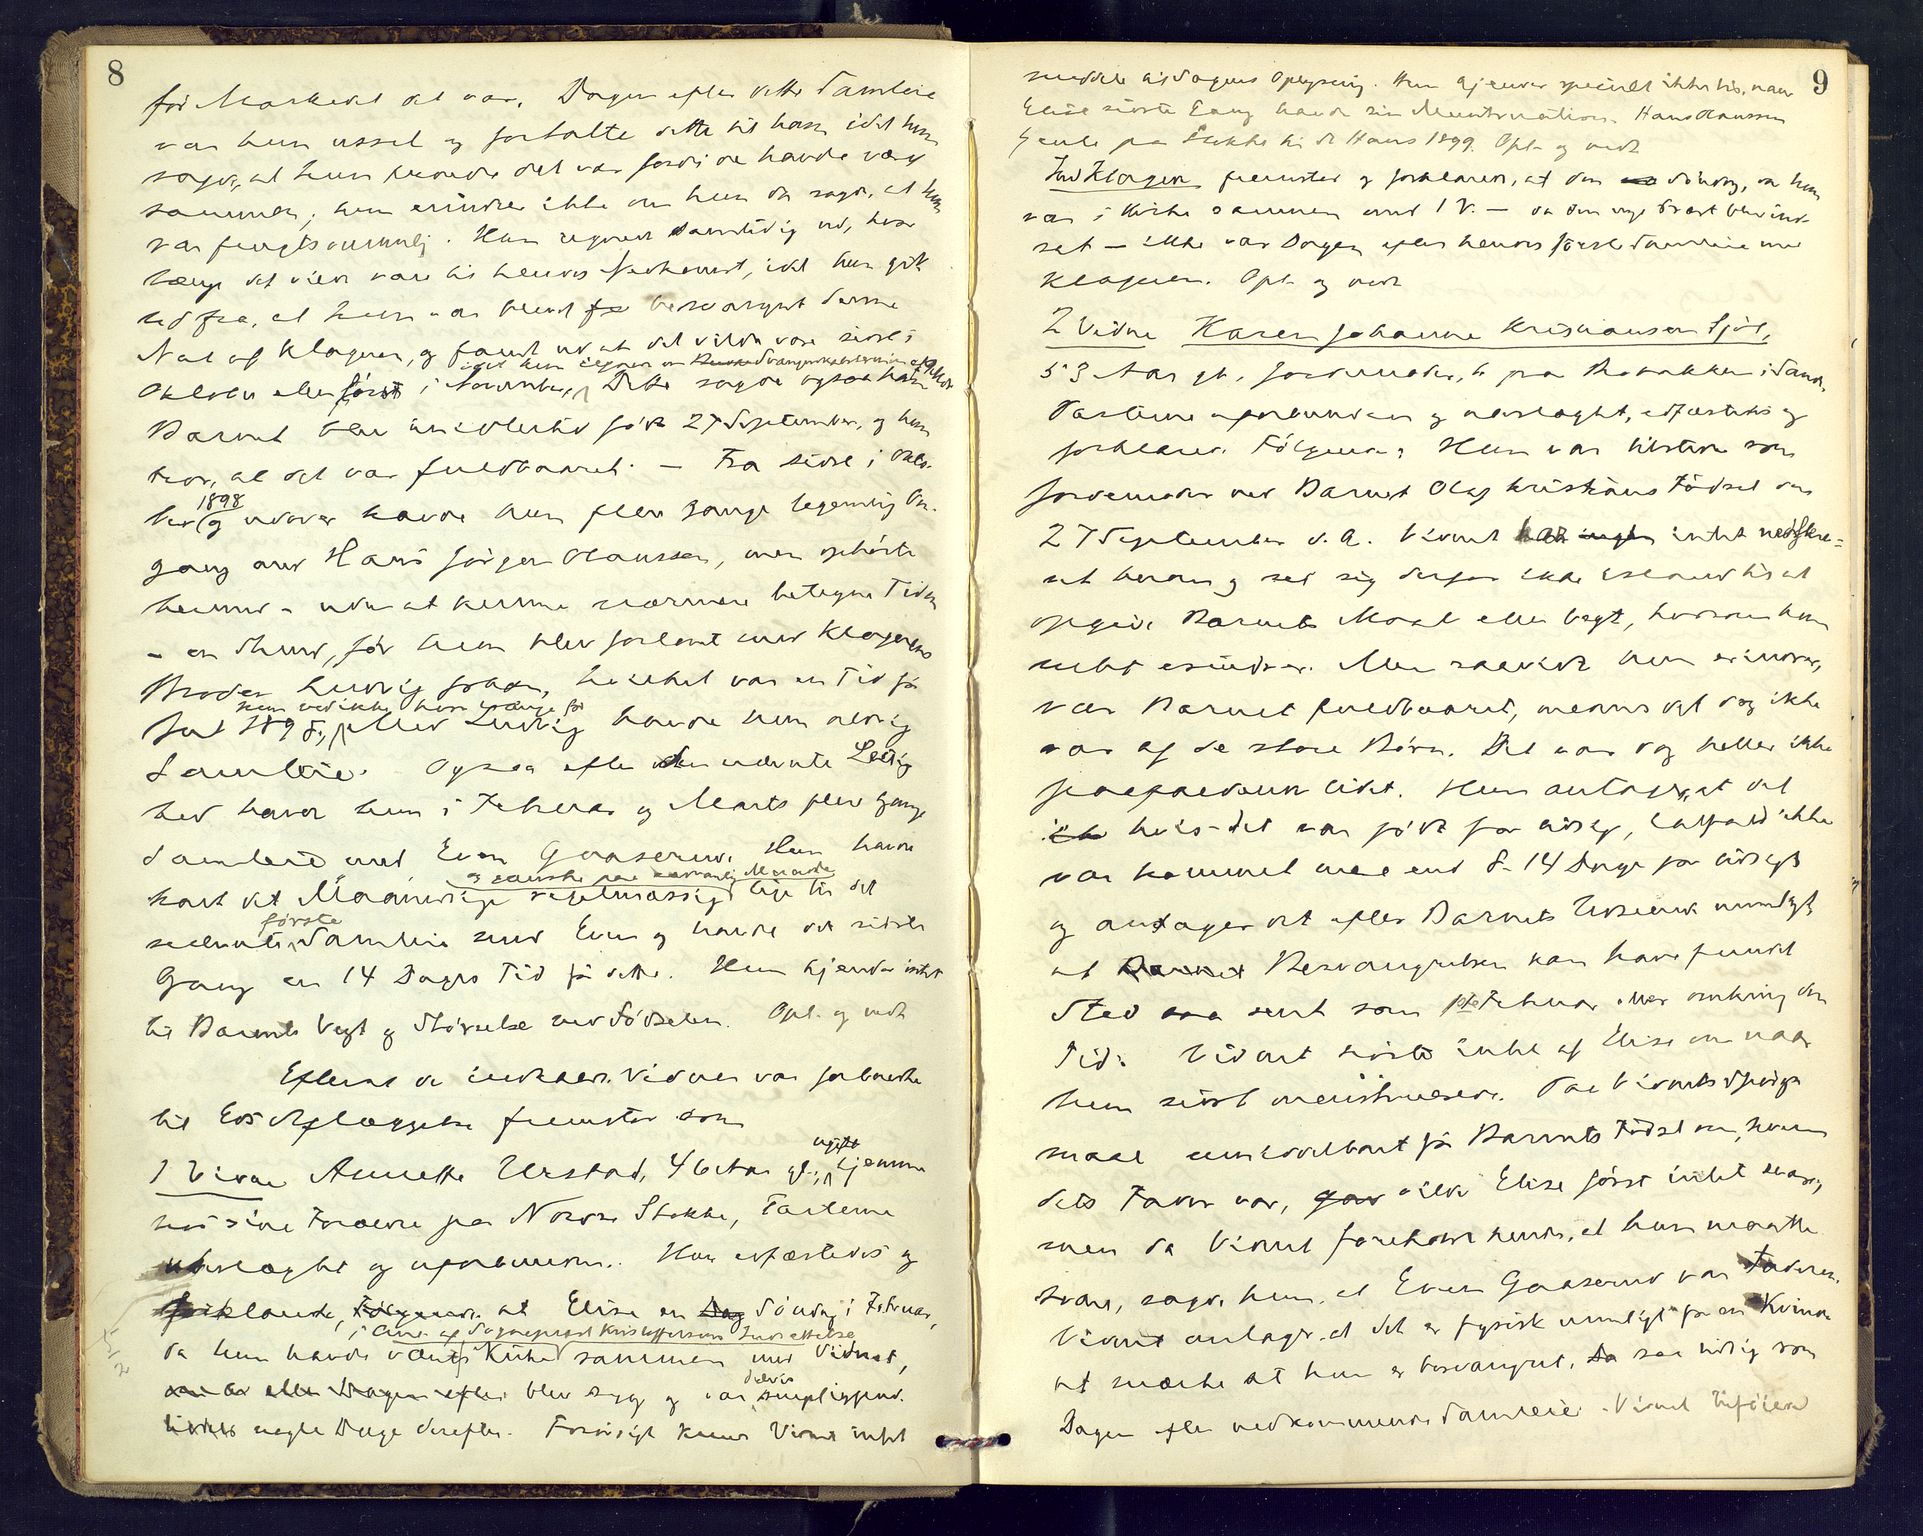 8
før Markedet det var. Dagen efter dette Samleie
var hun ussel og fortalte dette til ham idet hun
sagde, at hun troede det var fordi de havde været
sammen; hun erindrer ikke om hun da sagde, at hun
var frugtsommelig. Hun regned samtidig ud, hvor
længe det vilde vare til hendes Nedkomst, idet hun gik
ud fra, at hun var blevet besvangret denne
Nat af Klageren, og fandt ud at det vilde være sidst i
Oktober eller først i November, Dette sagde ogsaa han
Barnet blev imidlertid født 27 September, og hun
tror, at det var fuldbaaret. — Fra sidst i Okto-
ber 1898 og udover havde hun flere Gange legemlig Om-
gang med Hans Jørgen Olaussen, men ophørte
hermed - uden at kunne nærmere betegne Tiden
- en Stund, før hun blev forlovet med Klagerens
Broder Ludvig Johan, hvilket var en Tid før
hun ved ikke hvor længe før
Jul 1898, Med Ludvig havde hun aldrig
Samleie. Ogsaa efter den nævnte Leilig
hed havde hun i Februar og Marts flere Gange
Samleie med Even Gaaserud. Hun havde
og ganske paa sædvanlig Maade
havt det Maanedlige regelmæssigt lige til det
første
nævnte Samleie med Even og havde det sidste
Gang en 14 Dages Tid før dette. Hun kjender intet
til Barnets Vegt og Størrelse ved Fødselen. Opl. og vedt
Efterat de indkaldte Vidner var forberedte
til Eds Aflæggelse fremstod som
1 Vidne Annette Urstad, 46 Aar gl., ugift hjemme
hos sine Forældre paa Nordre Stokke, Parterne
ubeslægtet og uforbunden. Hun edfæstedes og
forklarede, Følgende: at Elise en Dag Søndag i Februar,
i Anl. af Sogneprest Kristoffersens Indsættelse
da hun havde været i Kirke sammen med Vidnet,
eller Dagen efter blev syg og var delvis sengeliggend.
nogle Dage derefter. Forøvrigt kunde Vidnet intet
9
meddele til Sagens Oplysning. Hun kjender specielt ikke til, naar
Elise sidste Gang havde sin Menstruation. Hans Olaussen
tjente paa Stokke til St Hans 1899. Opl. og vedt
Indklagede fremstod og forklarede, at den Søndag, da hun
var i Kirke sammen med 1 V. — da den nye Prest blev ind-
sat — ikke var Dagen efter hendes første Samleie med
Klageren. Opl. og vedt
2 Vidne Karen Johanne Kristiansen Sjøl,
53 Aar gl., Jordemoder, b. paa Robakken i Sand.
Parterne uforbunden og ubeslægtet, edfæstedes og
forklarede Følgende: Hun var tilstede som
Jordemoder ved Barnet Olaf Kristians Fødsel den
27 September d. A. Vidnet har ingen intet nedskre-
vet herom og ser sig derfor ikke istand til at
opgive Barnets Maal eller Vegt, hvilket hun
intet erindrer. Men saavidt hun erindrer,
var Barnet fuldbaaret, omend det dog ikke
var af de store Børn. Det var dog heller ikke
paafaldende lidet. Hun antager, at det
hvis det var født for tidlig, i alfald ikke
var kommet mere end 8-14 Dage for tidligt
og antager det efter Barnets Udseende muligt,
at Barnet Besvangrelsen kan have fundet
Sted saa sent som 1ste Februar eller omkring den
Tid. Vidnet hørte intet af Elise om naar
hun sidst menstruerede. Paa Vidnets Spørgs-
maal umiddelbart før Barnets Fødsel om, hvem
dets Fader var, gav vilde Elise først intet svare,
men da Vidnet foreholdt hende, at hun maatte
svare, sagde hun, at Even Gaaserud var Faderen.
Vidnet antager, at det er fysisk umuligt for en Kvinde
at mærke at hun er besvangret, saa tidlig som
Dagen efter vedkommende Samleie. Vidnet tilføied